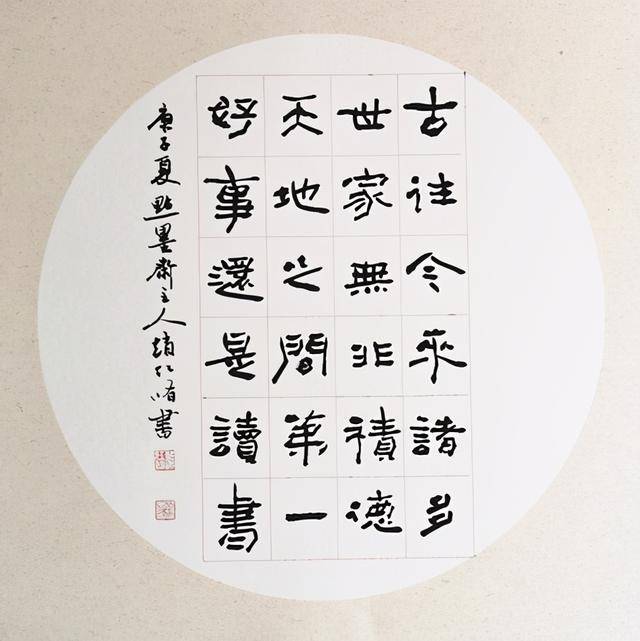 古往今來諸多
世家無非積德
天地之間第一
好事還是讀書
庚子夏點墨齋主人趙仁書